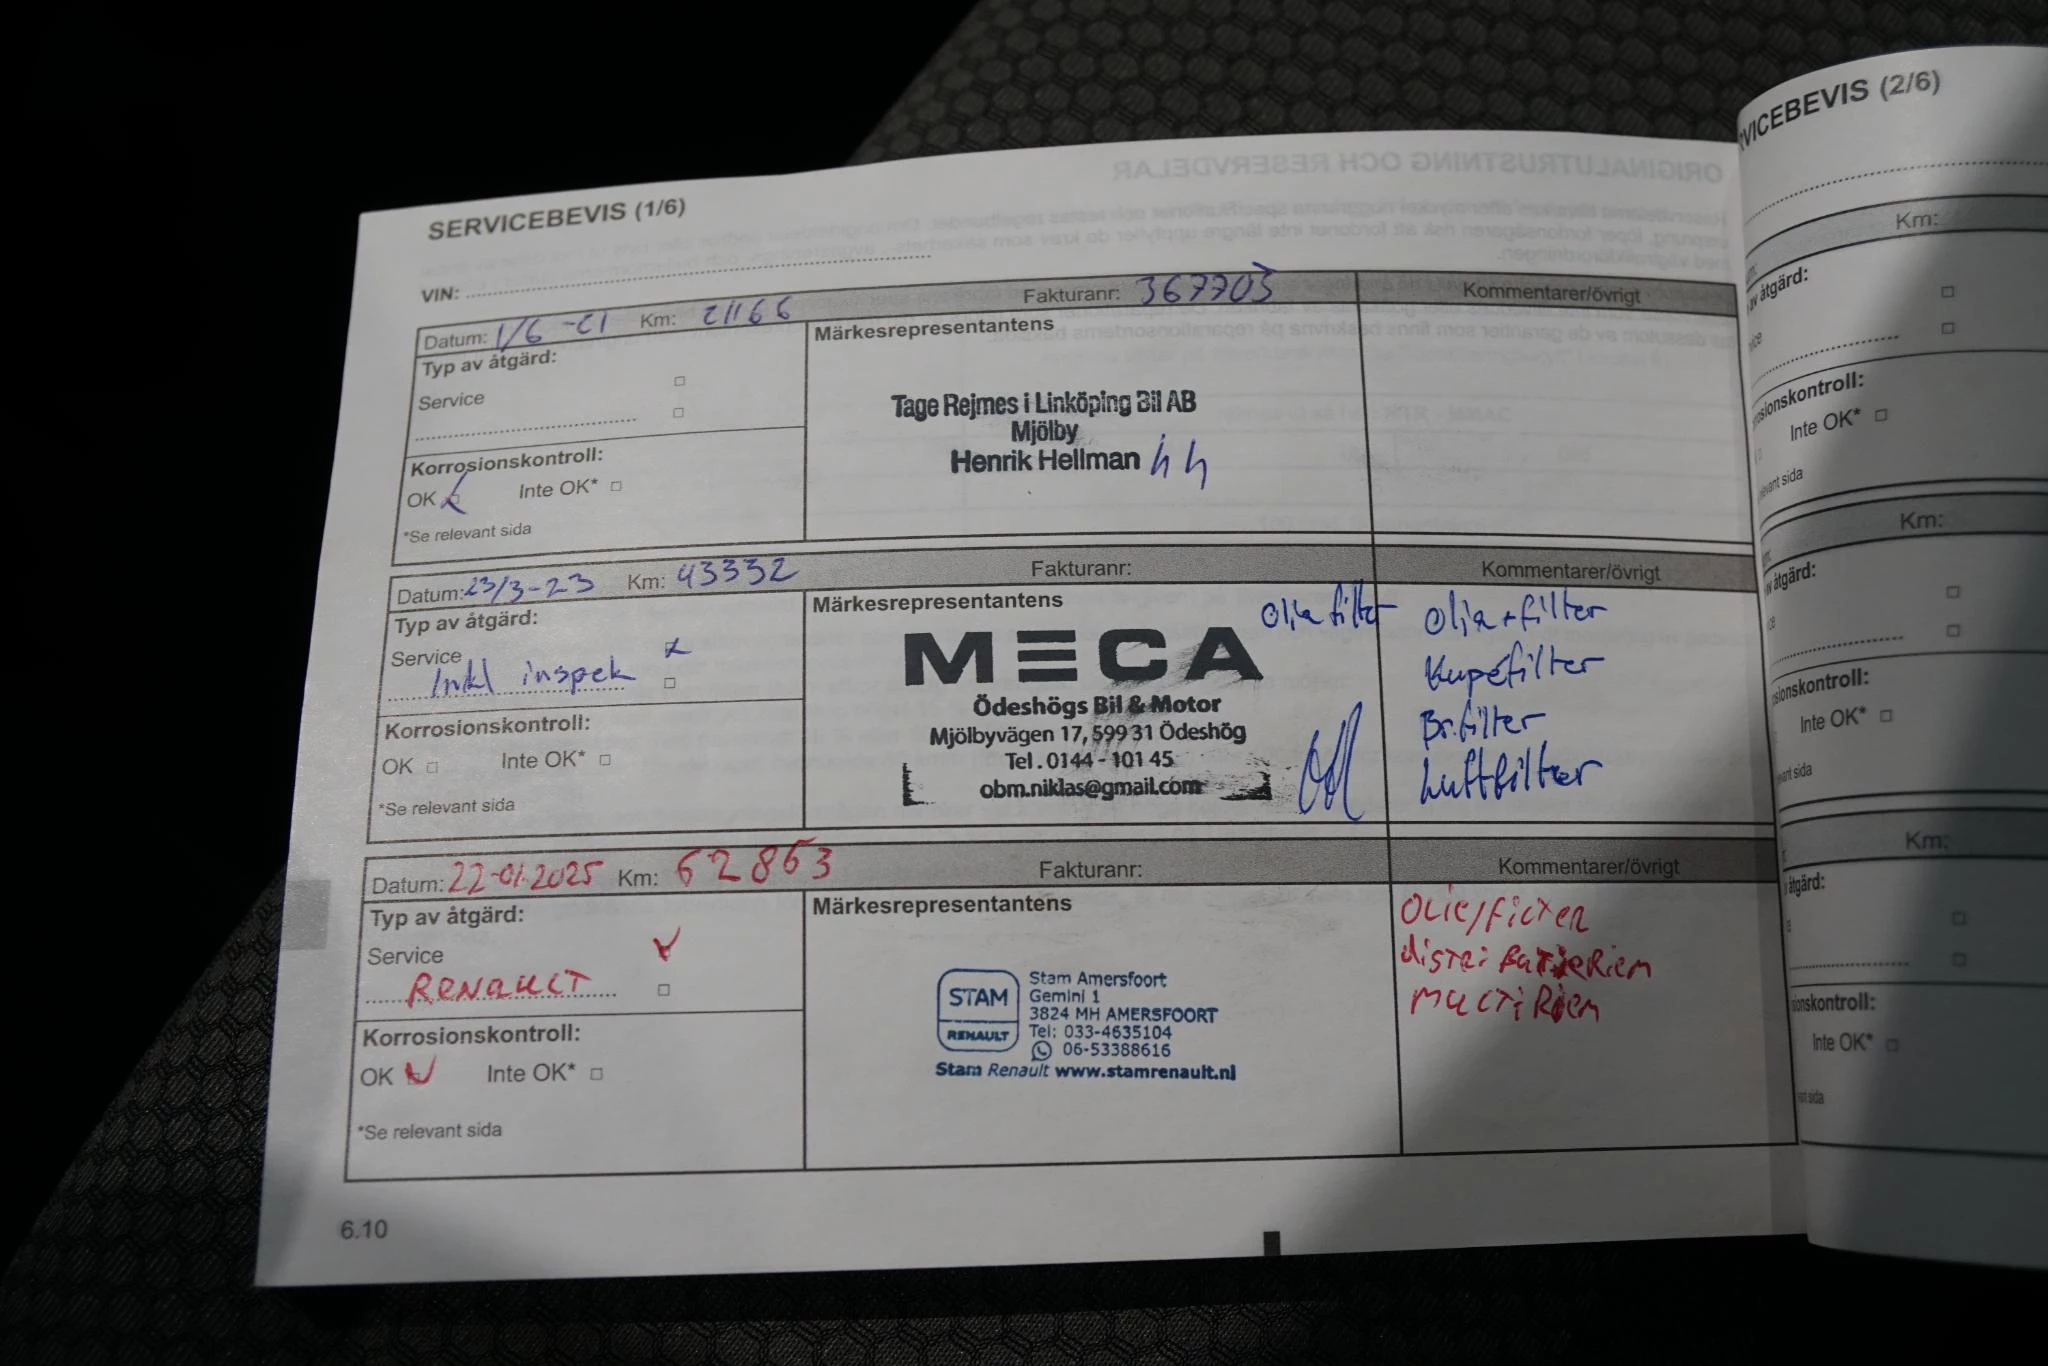 SERVICEBEVIS (1/6)
VIN:
Datum: 1/6 -21 Km: 21166 Fakturanr: 367703 Kommentarer/övrigt
Typ av åtgärd:
Märkesrepresentantens
Service
Tage Rejmes i Linköping Bil AB
Mjölby
Henrik Hellman hh
Korrosionskontroll:
OK Inte OK*
*Se relevant sida
Datum: 23/3-23 Km: 43332 Fakturanr: Kommentarer/övrigt
Typ av åtgärd:
Märkesrepresentantens
Olja filter
Olja+filter
Service
Inkl inspek
MECA
Kupéfilter
Ödeshögs Bil & Motor
Br.filter
Korrosionskontroll:
Mjölbyvägen 17, 599 31 Ödeshög
OK Inte OK*
Tel. 0144 - 101 45
Luftfilter
obm.niklas@gmail.com
*Se relevant sida
Datum: 22-01-2025 Km: 62863 Fakturanr: Kommentarer/övrigt
Typ av åtgärd:
Märkesrepresentantens
OLIE/FILTER
Service
RENAULT
distributieRiem
MULTIRiem
STAM
RENAULT
Stam Amersfoort
Gemini 1
3824 MH AMERSFOORT
Tel: 033-4635104
06-53388616
Stam Renault www.stamrenault.nl
Korrosionskontroll:
OK Inte OK*
*Se relevant sida
6.10
ORIGINALUTRUSTNING OCH RESERVDELAR
VICEBEVIS (2/6)
Km:
av åtgärd:
Inte OK*
Km:
åtgärd:
onskontroll:
Inte OK*
Km:
åtgärd:
ionskontroll:
Inte OK*